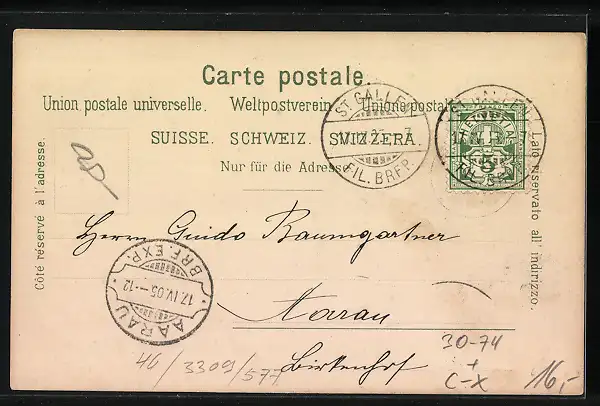 Carte postale.
Union postale universelle. Weltpostverein Unione postale
SUISSE. SCHWEIZ. SVIZZERA.
Nur für die Adresse
Côté réservé à l'adresse.
Lato riservato all' indirizzo.
ST. GALLEN
FIL. BRFP.
HELVETIA
5
Herrn Guido Baumgartner
Aarau
Birkenhof
AARAU
17.IV.05.-12
BRF. EXP.
46/3309/577
30-74
+
C-X
16,-